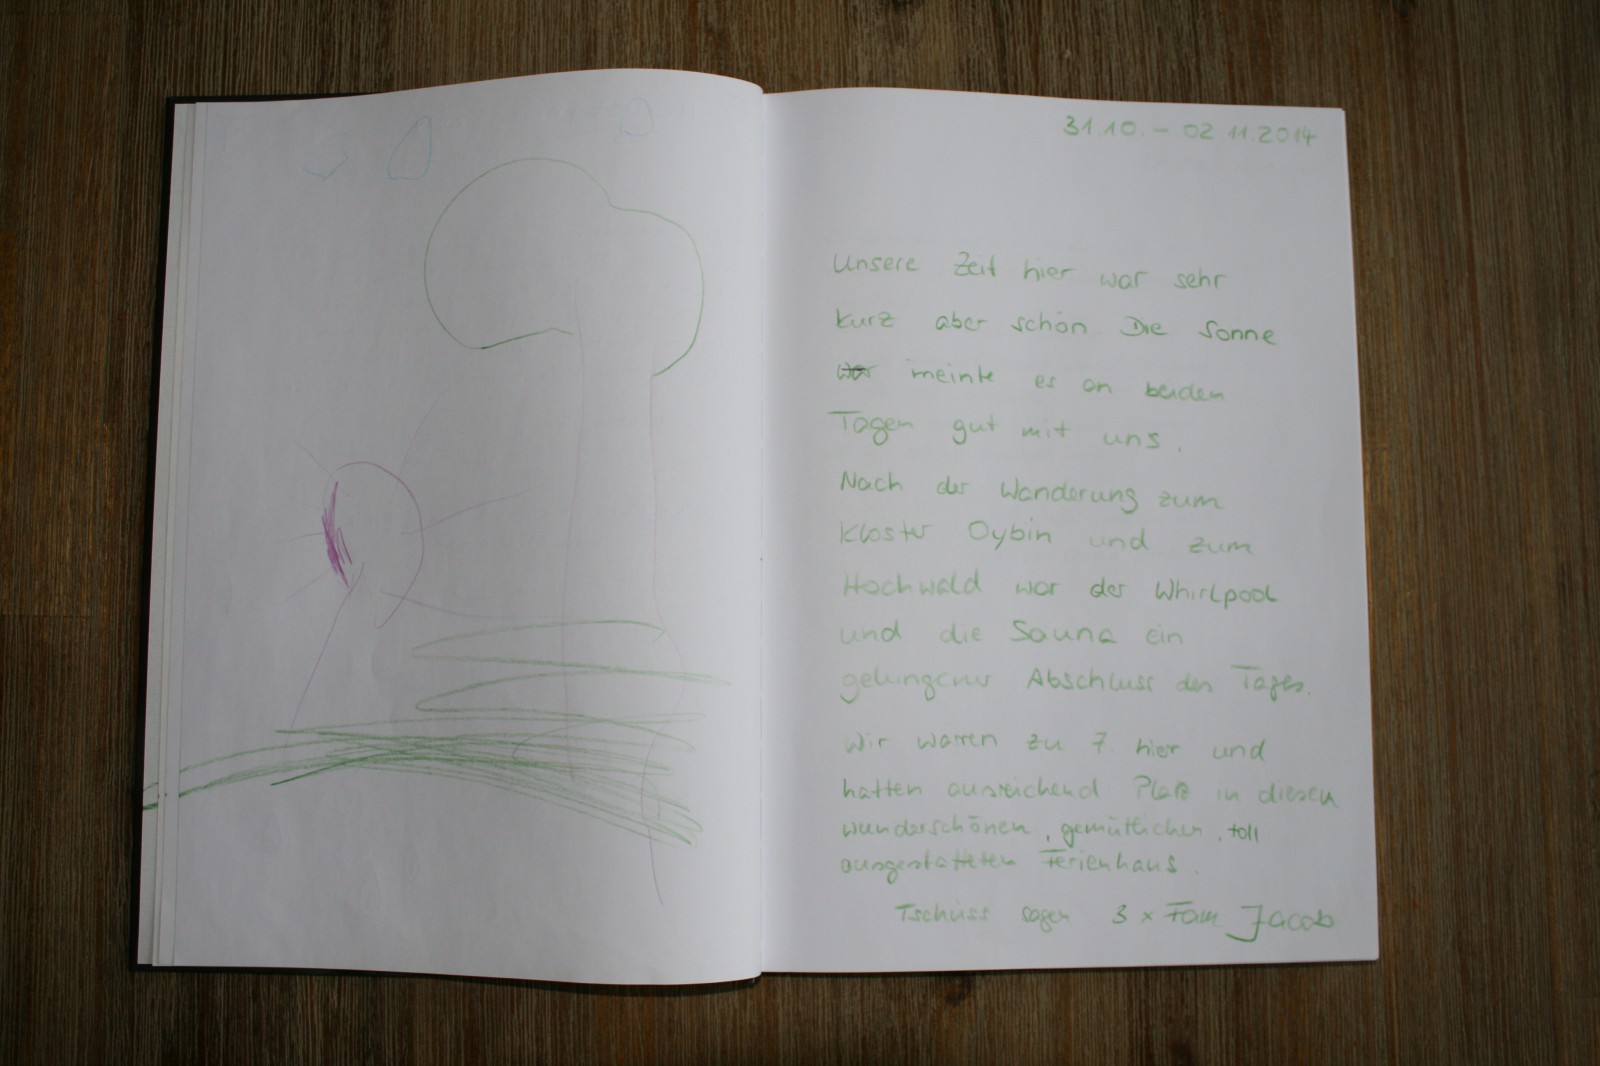 31.10. – 02.11.2014
Unsere Zeit hier war sehr
kurz aber schön Die Sonne
war meinte es an beiden
Tagen gut mit uns.
Nach der Wanderung zum
Kloster Oybin und zum
Hochwald war der Whirlpool
und die Sauna ein
gelungener Abschluss des Tages.
Wir waren zu 7. hier und
hatten ausreichend Platz in diesen
wunderschönen, gemütlichen, toll
ausgestatteten Ferienhaus.
Tschüss sagen 3 x Fam Jacob